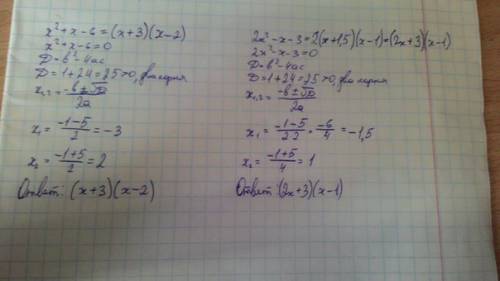 x² + x - 6 = (x+3)(x-2)
x² + x - 6 = 0
D = b² - 4ac
D = 1 + 24 = 25 > 0, два корня
x₁,₂ = (-b ± √D)/2a
x₁ = (-1-5)/2 = -3
x₂ = (-1+5)/2 = 2
Ответ: (x+3)(x-2)
2x² - x - 3 = 2(x+1,5)(x-1) = (2x+3)(x-1)
2x² - x - 3 = 0
D = b² - 4ac
D = 1 + 24 = 25 > 0, два корня
x₁,₂ = (-b ± √D)/2a
x₁ = (-1-5)/2·2 = -6/4 = -1,5
x₂ = (-1+5)/4 = 1
Ответ: (2x+3)(x-1)